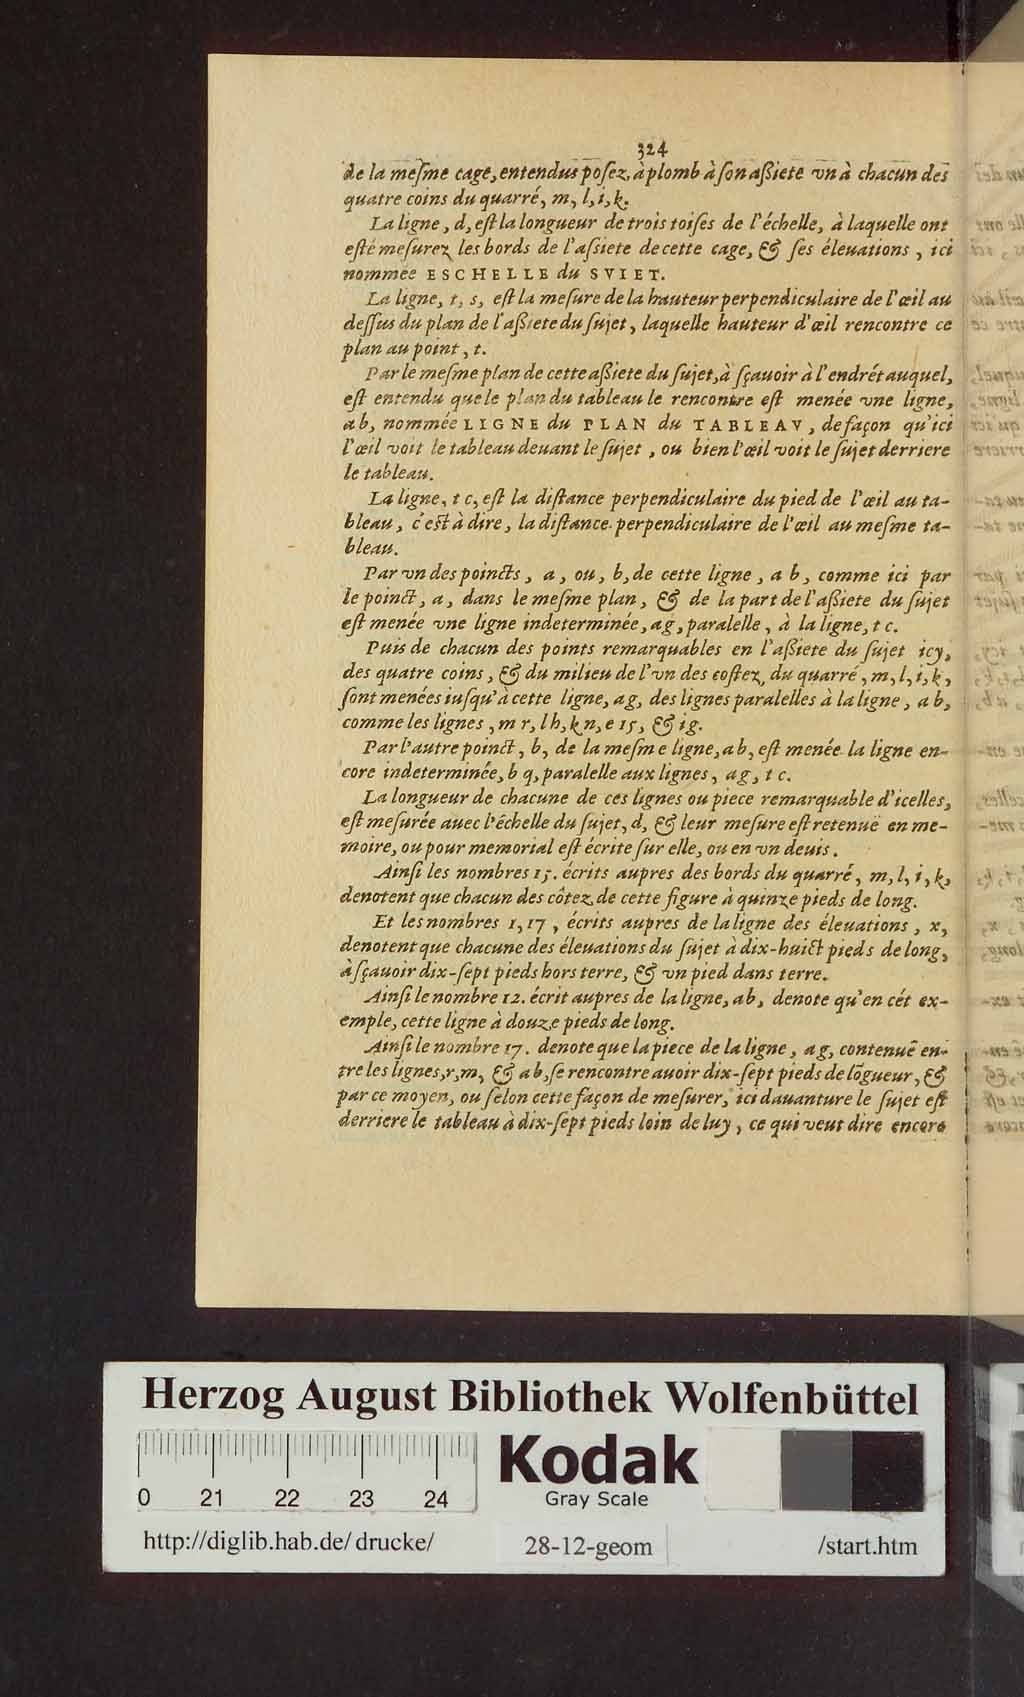 324
de la meſme cage, entendus poſez, à plomb à ſon aſſiete vn à chacun des
quatre coins du quarré, m, l, i, k.
La ligne, d, eſt la longueur de trois toiſes de l'échelle, à laquelle ont
eſté meſurez les bords de l'aſsiete de cette cage, & ſes éleuations, ici
nommée ESCHELLE du SVIET.
La ligne, t, s, eſt la meſure de la hauteur perpendiculaire de l'œil au
deſſus du plan de l'aſſiete du ſujet, laquelle hauteur d'œil rencontre ce
plan au point, t.
Par le meſme plan de cette aſſiete du ſujet, à ſçauoir à l'endrét auquel,
eſt entendu que le plan du tableau le rencontre eſt menée vne ligne,
ab, nommée LIGNE du PLAN du TABLEAV, de façon qu'ici
l'œil voit le tableau deuant le ſujet, ou bien l'œil voit le ſujet derriere
le tableau.
La ligne, t c, eſt la diſtance perpendiculaire du pied de l'œil au ta-
bleau, c'eſt à dire, la diſtance perpendiculaire de l'œil au meſme ta-
bleau.
Par vn des poincts, a, ou, b, de cette ligne, a b, comme ici par
le poinct, a, dans le meſme plan, & de la part de l'aſſiete du ſujet
eſt menée vne ligne indeterminée, ag, paralelle, à la ligne, t c.
Puis de chacun des points remarquables en l'aſſiete du ſujet icy,
des quatre coins, & du milieu de l'vn des coſtez, du quarré, m, l, i, k,
ſont menées iuſqu'à cette ligne, ag, des lignes paralelles à la ligne, ab,
comme les lignes, m r, l h, k n, e 15, & ig.
Par l'autre poinct, b, de la meſme ligne, ab, eſt menée la ligne en-
core indeterminée, b q, paralelle aux lignes, ag, t c.
La longueur de chacune de ces lignes ou piece remarquable d'icelles,
eſt meſurée auec l'échelle du ſujet, d, & leur meſure eſt retenuë en me-
moire, ou pour memorial eſt écrite ſur elle, ou en vn deuis.
Ainſi les nombres 15. écrits aupres des bords du quarré, m, l, i, k,
denotent que chacun des côtez de cette figure à quinze pieds de long.
Et les nombres 1, 17, écrits aupres de la ligne des éleuations, x,
denotent que chacune des éleuations du ſujet à dix-huict pieds de long,
à ſçauoir dix-ſept pieds hors terre, & vn pied dans terre.
Ainſi le nombre 12. écrit aupres de la ligne, ab, denote qu'en cét ex-
emple, cette ligne à douze pieds de long.
Ainſi le nombre 17. denote que la piece de la ligne, ag, contenuë en-
tre les lignes, r, m, & ab, ſe rencontre auoir dix-ſept pieds de lõgueur, &
par ce moyen, ou ſelon cette façon de meſurer, ici dauanture le ſujet eſt
derriere le tableau à dix-ſept pieds loin de luy, ce qui veut dire encore
Herzog August Bibliothek Wolfenbüttel
0 21 22 23 24
Kodak
Gray Scale
http://diglib.hab.de/drucke/ 28-12-geom /start.htm